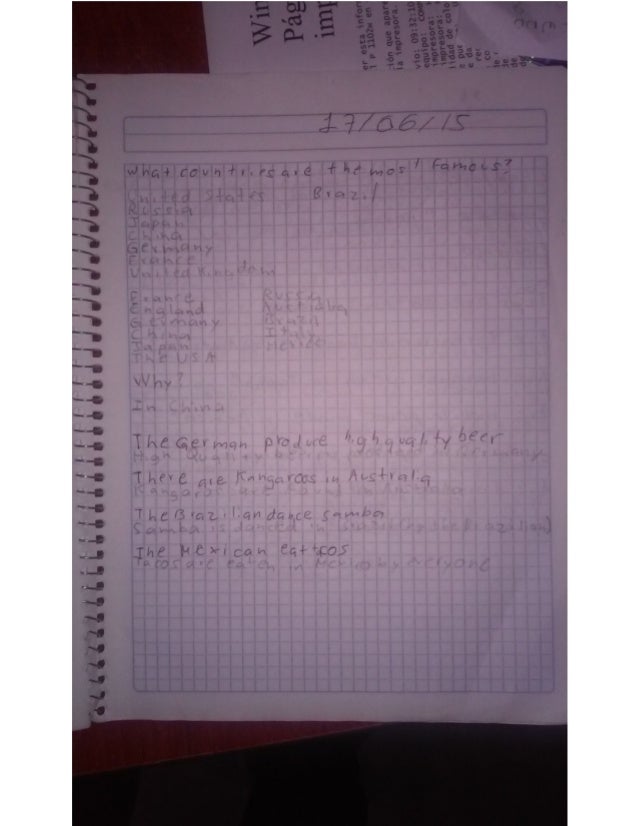 Win
Pág
imp
er esta infor
1 P 1102w en
ión que apare
la impresora.
vio: 09:32:10
equipo: com
impresora:
impresora:
lidad de colo
17/06/15
What countries are the most famous?
United States Brazil
Russia
Japan
China
Germany
France
United Kingdom
France Russia
England Australia
Germany Brazil
China Italy
Japan Mexico
The USA
Why?
In China
The German produce high quality beer
High quality beer is produced in Germany
There are Kangaroos in Australia
Kangaroos are found in Australia
The Brazilian dance samba
Samba is danced in Brazil (by the Brazilian)
The Mexican eat tacos
Tacos are eaten in Mexico by everyone